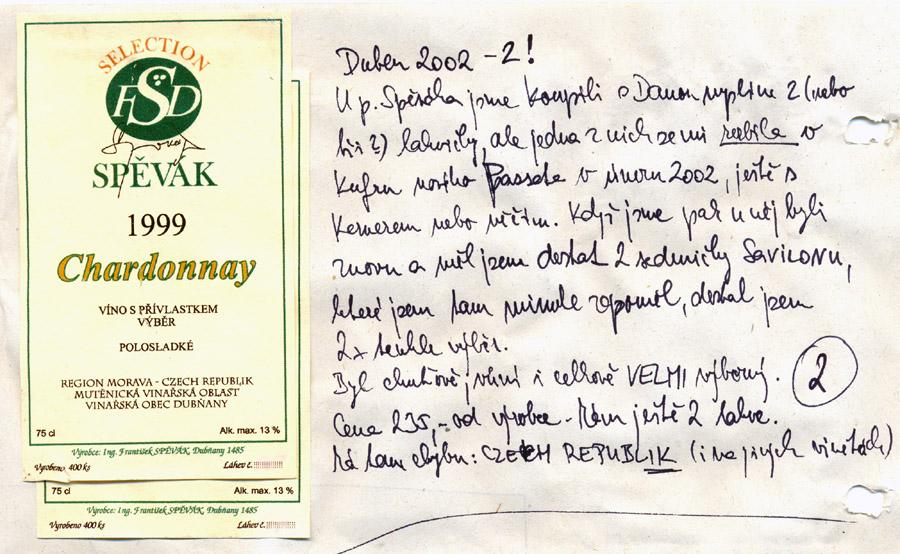 SELECTION
FSD
SPĚVÁK
1999
Chardonnay
VÍNO S PŘÍVLASTKEM
VÝBĚR
POLOSLADKÉ
REGION MORAVA - CZECH REPUBLIK
MUTĚNICKÁ VINAŘSKÁ OBLAST
VINAŘSKÁ OBEC DUBŇANY
75 cl Alk. max. 13 %
Výrobce: Ing. František SPĚVÁK, Dubňany 1485
Vyrobeno 400 ks Láhev č.
75 cl Alk. max. 13 %
Výrobce: Ing. František SPĚVÁK, Dubňany 1485
Vyrobeno 400 ks Láhev č.
Duben 2002 - 2!
U p. Spěváka jsme koupili s Danou 2 (nebo
3?) lahvičky, ale jedna z nich se mi rozbila v
kufru nového Passata v únoru 2002, ještě s
Kernerem nebo něčím. Když jsme pak u něj byli
znovu a měl jsem dostat 2 sedmičky
které jsem tam minule zapomněl, dostal jsem
2x tenhle výběr.
Byl chuťově, vůní i celkově VELMI výborný. 2
Cena 235,- od výrobce. Mám ještě 2 lahve.
Má tam chybu: CZECH REPUBLIK (i na jiných vinětách)